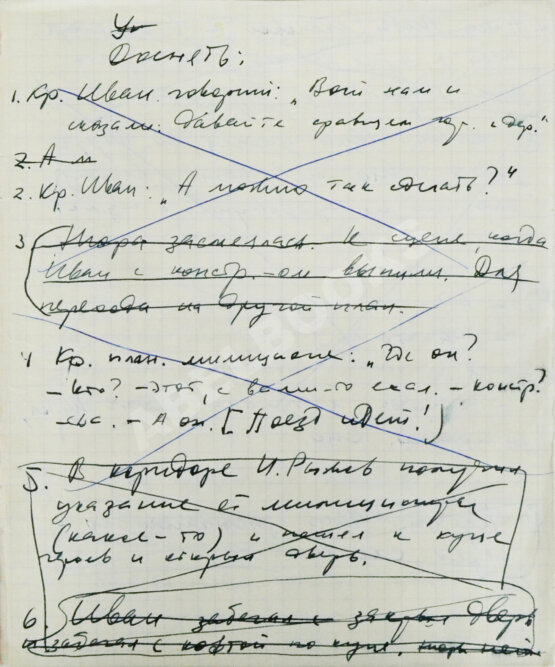 Доснять:
1. Кр. Иван говорит: „Вот нам и
сказали: давайте сравняем гор. и дер."
2. А м
2. Кр. Иван: „А можно так сделать?"
3 Нюра засмеялась. К сцене, когда
Иван с констр.-ом выпили. Для
перехода на другой план.
4 Кр. план. милиционе: „Где он?
– Кто? – Этот, с вами-то ехал. – Констр?
– А он. [Поезд идет!]
5. В коридоре И. Рыжов получил
указание от милиционера
(какое-то) и пошел к купе
героев и открыл дверь.
6. Иван забегал с закрыл дверь
и забегал с кофтой по купе.